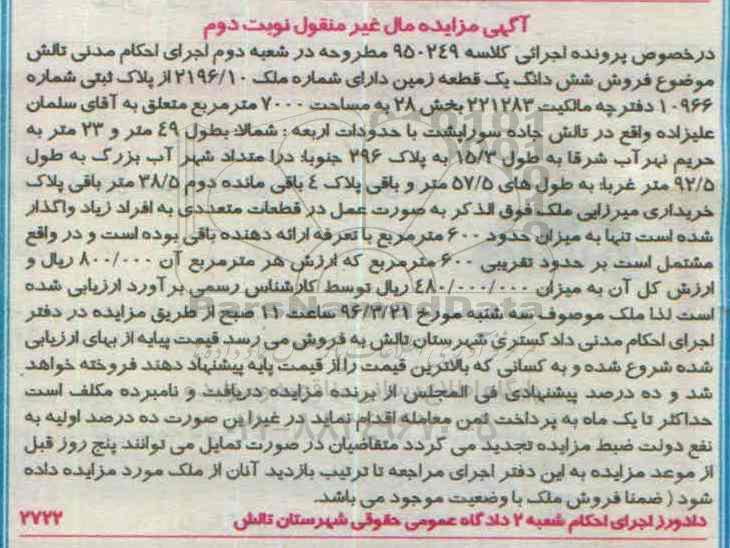 آگهی مزایده مال غیر منقول نوبت دوم
درخصوص پرونده اجرائی کلاسه ۹۵۰۲۴۹ مطروحه در شعبه دوم اجرای احکام مدنی تالش
موضوع فروش شش دانگ یک قطعه زمین دارای شماره ملک ۲۱۹۶/۱۰ از پلاک ثبتی شماره
۱۰۹۶۶ دفترچه مالکیت ۲۲۱۲۸۳ بخش ۲۸ به مساحت ۷۰۰۰ مترمربع متعلق به آقای سلمان
علیزاده واقع در تالش جاده سوراپشت با حدودات اربعه : شمالا: بطول ۴۹ متر و ۲۳ متر به
حریم نهرآب شرقا به طول ۱۵/۳ به پلاک ۲۹۶ جنوبا: درا متداد شهر آب بزرگ به طول
۹۲/۵ متر غربا: به طول های ۵۷/۵ متر و باقی پلاک ۴ باقی مانده دوم ۳۸/۵ متر باقی پلاک
خریداری میرزایی ملک فوق الذکر به صورت عمل در قطعات متعددی به افراد زیاد واگذار
شده است تنها به میزان حدود ۶۰۰ مترمربع با تعرفه ارائه دهنده باقی بوده است و در واقع
مشتمل است بر حدود تقریبی ۶۰۰ مترمربع که ارزش هر مترمربع آن ۸۰۰/۰۰۰ ریال و
ارزش کل آن به میزان ۴۸۰/۰۰۰/۰۰۰ ریال توسط کارشناس رسمی برآورد ارزیابی شده
است لذا ملک موصوف سه شنبه مورخ ۹۶/۳/۲۱ ساعت ۱۱ صبح از طریق مزایده در دفتر
اجرای احکام مدنی دادگستری شهرستان تالش به فروش می رسد قیمت پیایه از بهای ارزیابی
شده شروع شده و به کسانی که بالاترین قیمت را از قیمت پایه پیشنهاد دهند فروخته خواهد
شد و ده درصد پیشنهادی فی المجلس از برنده مزایده دریافت و نامبرده مکلف است
حداکثر تا یک ماه به پرداخت ثمن معامله اقدام نماید در غیرا ین صورت ده درصد اولیه به
نفع دولت ضبط مزایده تجدید می گردد متقاضیان در صورت تمایل می توانند پنج روز قبل
از موعد مزایده به این دفتر اجرای مراجعه تا ترتیب بازدید آنان از ملک مورد مزایده داده
شود ( ضمنا فروش ملک با وضعیت موجود می باشد.
دادورز اجرای احکام شعبه ۲ دادگاه عمومی حقوقی شهرستان تالش ۲۷۲۲
ParsNamadData